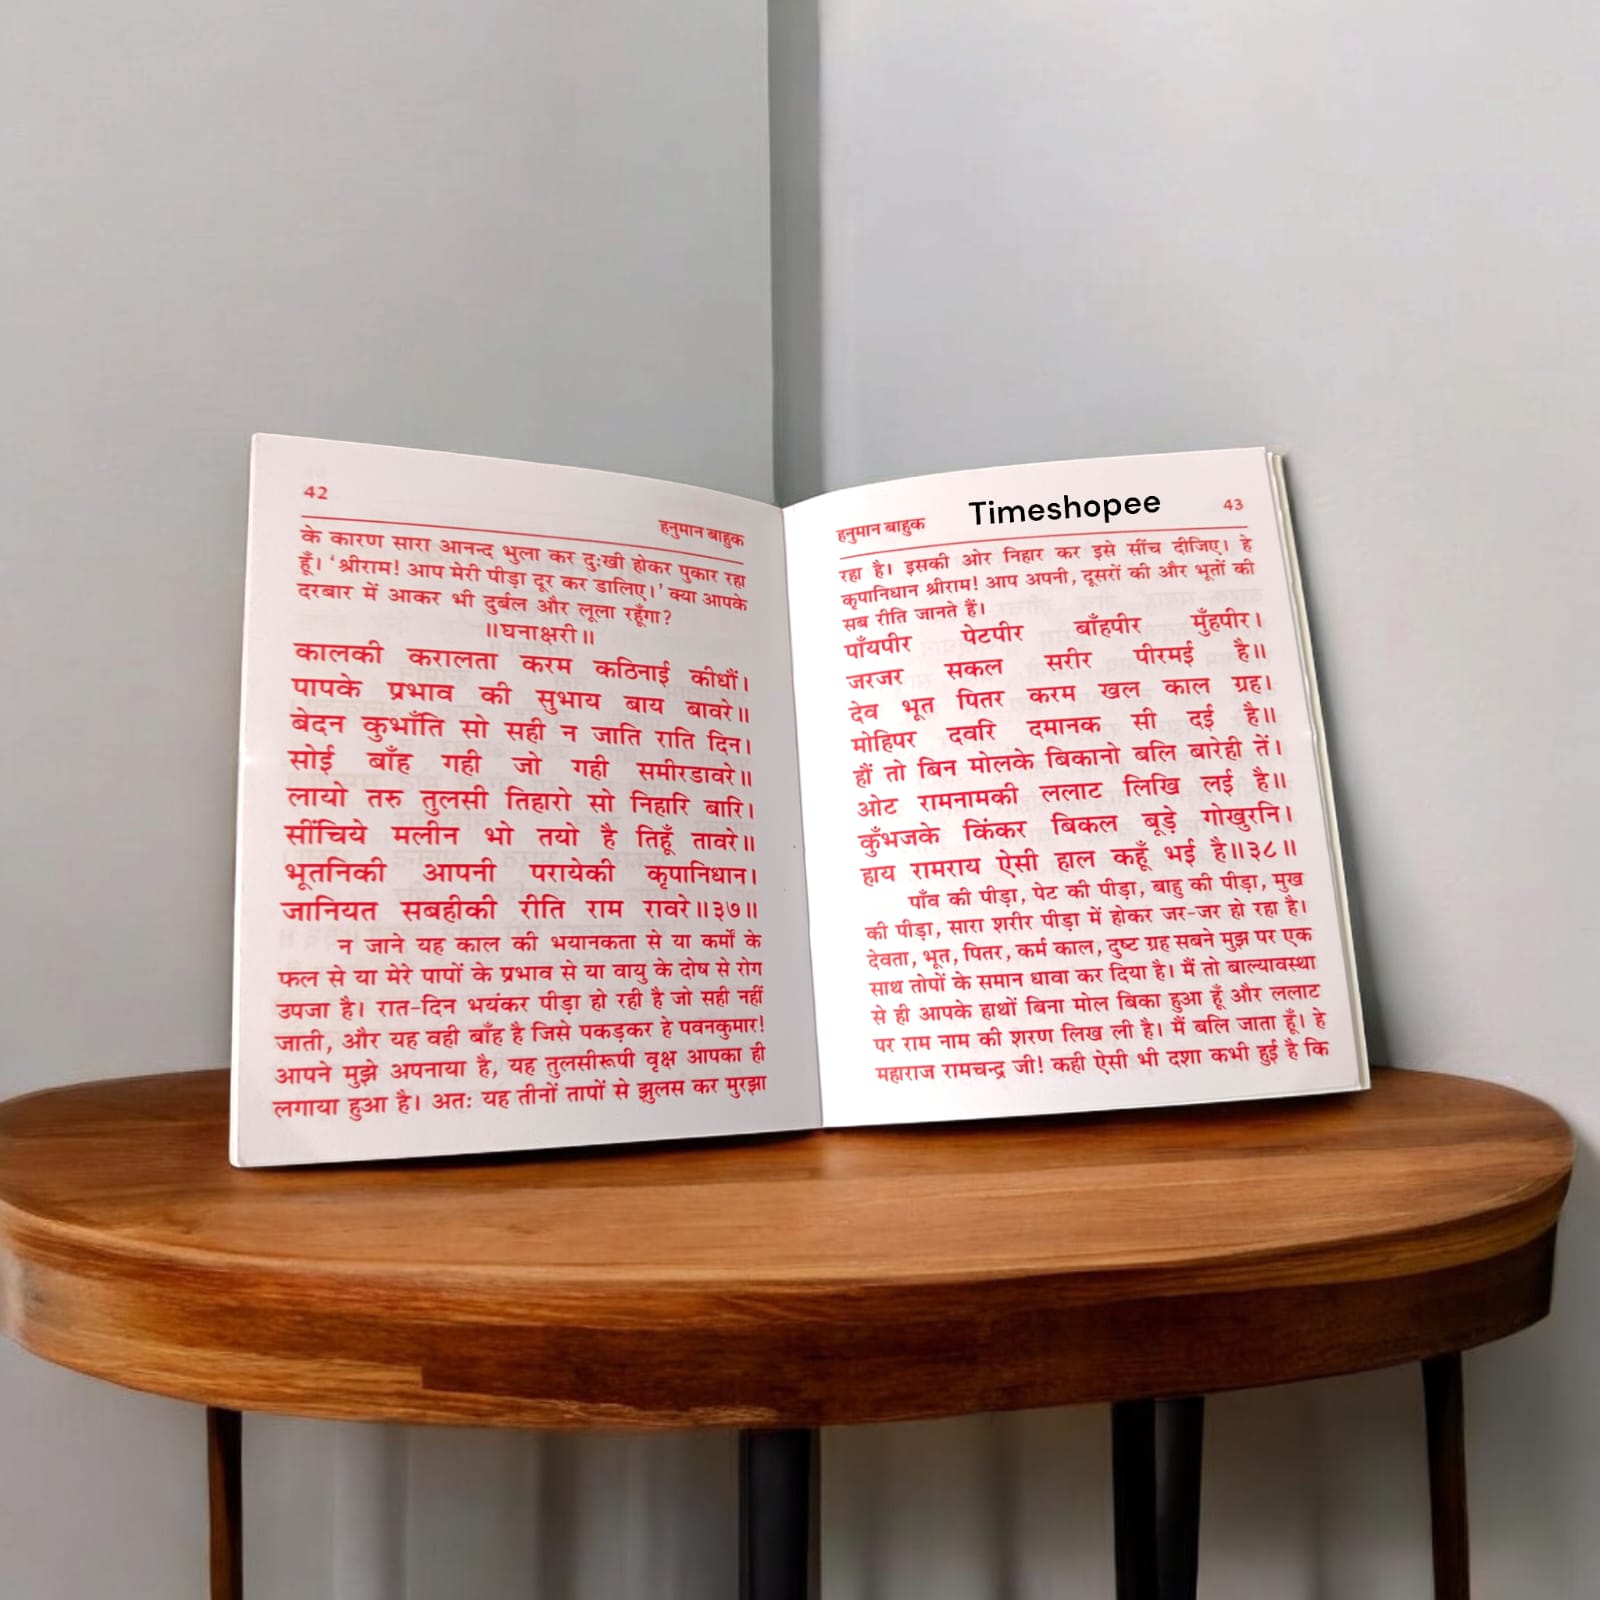 42
हनुमान बाहुक
के कारण सारा आनन्द भुला कर दुःखी होकर पुकार रहा
हूँ। ‘श्रीराम! आप मेरी पीड़ा दूर कर डालिए।’ क्या आपके
दरबार में आकर भी दुर्बल और लूला रहूँगा?
॥घनाक्षरी॥
कालकी करालता करम कठिनाई कीधौं।
पापके प्रभाव की सुभाय बाय बावरे॥
बेदन कुभाँति सो सही न जाति राति दिन।
सोई बाँह गही जो गही समीरडावरे॥
लायो तरु तुलसी तिहारो सो निहारि बारि।
सींचिये मलीन भो तयो है तिहूँ तावरे॥
भूतनिकी आपनी परायेकी कृपानिधान।
जानियत सबहीकी रीति राम रावरे॥३७॥
न जाने यह काल की भयानकता से या कर्मों के
फल से या मेरे पापों के प्रभाव से या वायु के दोष से रोग
उपजा है। रात-दिन भयंकर पीड़ा हो रही है जो सही नहीं
जाती, और यह वही बाँह है जिसे पकड़कर हे पवनकुमार!
आपने मुझे अपनाया है, यह तुलसीरूपी वृक्ष आपका ही
लगाया हुआ है। अतः यह तीनों तापों से झुलस कर मुरझा
हनुमान बाहुक
Timeshopee
43
रहा है। इसकी ओर निहार कर इसे सींच दीजिए। हे
कृपानिधान श्रीराम! आप अपनी, दूसरों की और भूतों की
सब रीति जानते हैं।
पाँयपीर पेटपीर बाँहपीर मुँहपीर।
जरजर सकल सरीर पीरमई है॥
देव भूत पितर करम खल काल ग्रह।
मोहिपर दवरि दमानक सी दई है॥
हौं तो बिन मोलके बिकानो बलि बारेही तें।
ओट रामनामकी ललाट लिखि लई है॥
कुँभजके किंकर बिकल बूड़े गोखुरनि।
हाय रामराय ऐसी हाल कहूँ भई है॥३८॥
पाँव की पीड़ा, पेट की पीड़ा, बाहु की पीड़ा, मुख
की पीड़ा, सारा शरीर पीड़ा में होकर जर-जर हो रहा है।
देवता, भूत, पितर, कर्म काल, दुष्ट ग्रह सबने मुझ पर एक
साथ तोपों के समान धावा कर दिया है। मैं तो बाल्यावस्था
से ही आपके हाथों बिना मोल बिका हुआ हूँ और ललाट
पर राम नाम की शरण लिख ली है। मैं बलि जाता हूँ। हे
महाराज रामचन्द्र जी! कही ऐसी भी दशा कभी हुई है कि